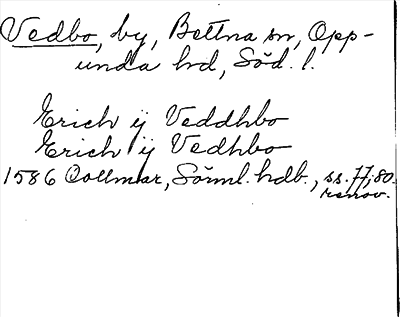 Vedbo, by, Bettna sn, Opp-
unda hrd, Söd. l.
Erich ij Veddhbo
Erich ij Vedhbo
1586 Dollmar, Sörml. hdb., ss. 77, 80.
renov.